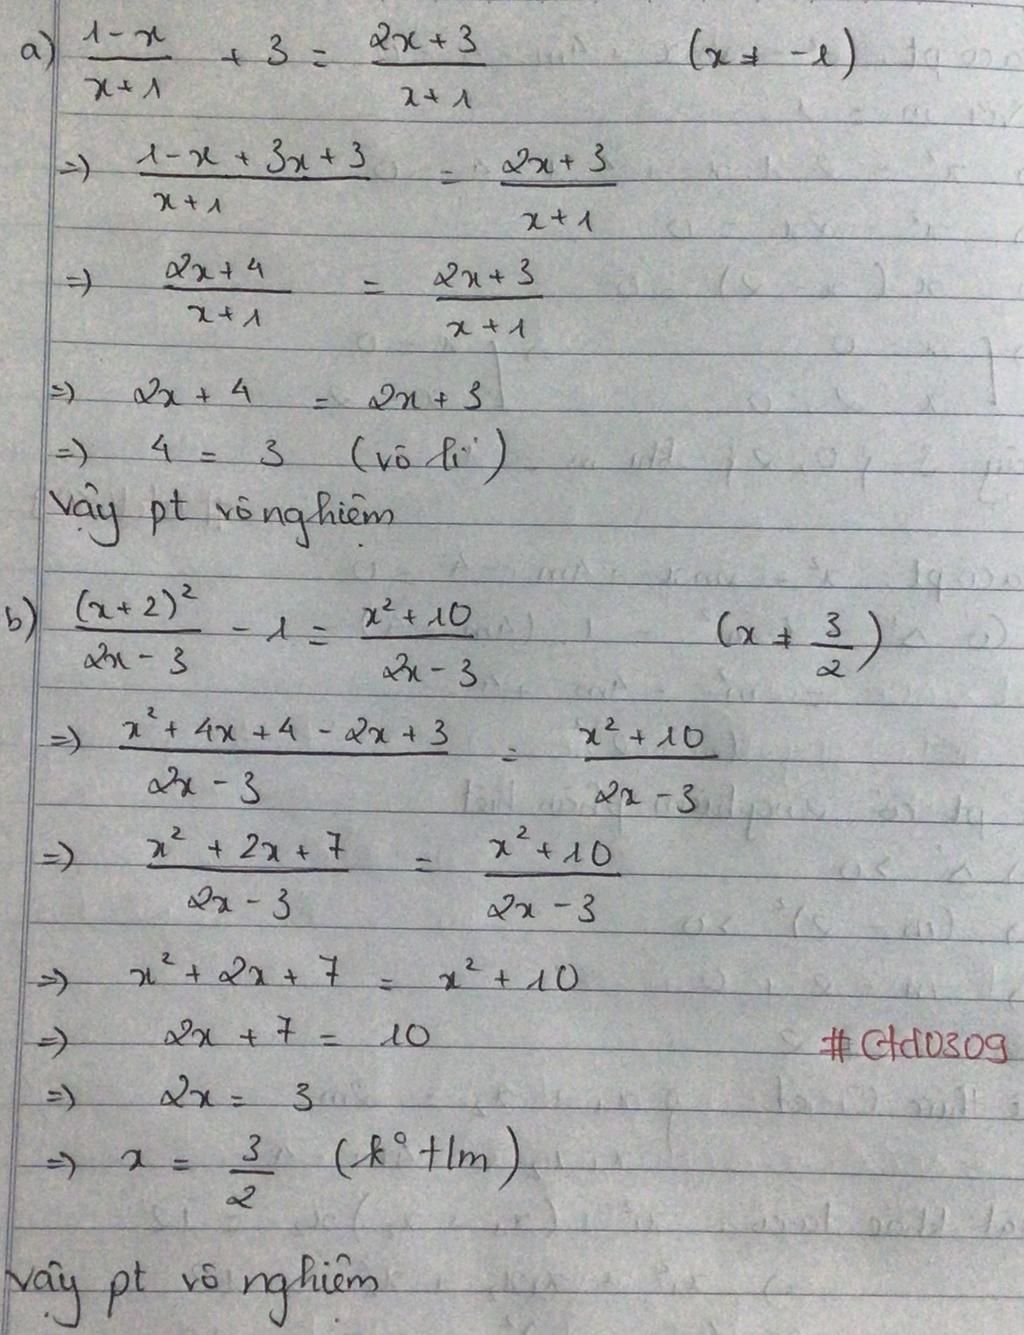 a) (1-x)/(x+1) + 3 = (2x+3)/(x+1) (x ≠ -1)
=> (1-x+3x+3)/(x+1) = (2x+3)/(x+1)
=> (2x+4)/(x+1) = (2x+3)/(x+1)
=> 2x+4 = 2x+3
=> 4 = 3 (vô lí)
vậy pt vô nghiệm
b) (x+2)²/(2x-3) - 1 = (x²+10)/(2x-3) (x ≠ 3/2)
=> (x²+4x+4-2x+3)/(2x-3) = (x²+10)/(2x-3)
=> (x²+2x+7)/(2x-3) = (x²+10)/(2x-3)
=> x²+2x+7 = x²+10
=> 2x+7 = 10
#Ctd0309
=> 2x = 3
=> x = 3/2 (k° tlm)
vậy pt vô nghiệm